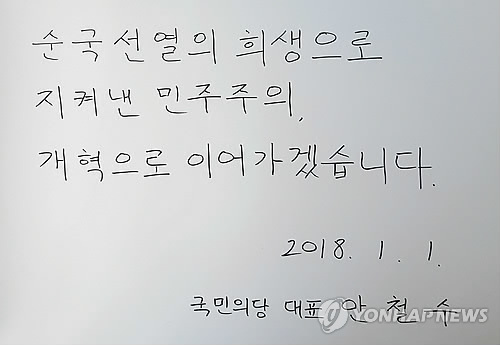 순국선열의 희생으로
지켜낸 민주주의,
개혁으로 이어가겠습니다.
2018. 1. 1.
국민의당 대표 안철수
YONHAPNEWS